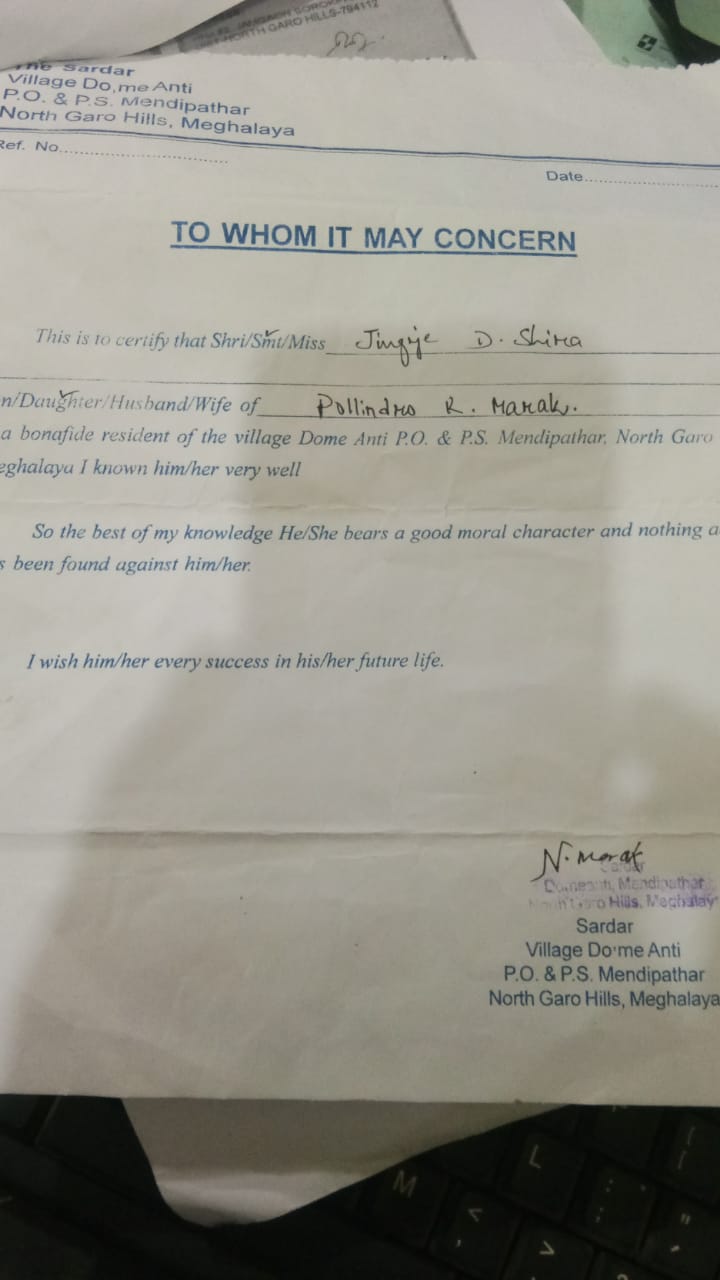 NORTH GARO HILLS-794112
The Sardar
Village Do,me Anti
P.O. & P.S. Mendipathar
North Garo Hills, Meghalaya
Ref. No.
Date
TO WHOM IT MAY CONCERN
This is to certify that Shri/Smt/Miss D. Shira
n/Daughter/Husband/Wife of Pollindro R. Marak.
a bonafide resident of the village Dome Anti P.O. & P.S. Mendipathar, North Garo
eghalaya I known him/her very well
So the best of my knowledge He/She bears a good moral character and nothing a
s been found against him/her.
I wish him/her every success in his/her future life.
N. Marak
Sardar
Domeanti, Mendipathar
North Garo Hills, Meghalay
Sardar
Village Do·me Anti
P.O. & P.S. Mendipathar
North Garo Hills, Meghalaya
L
M